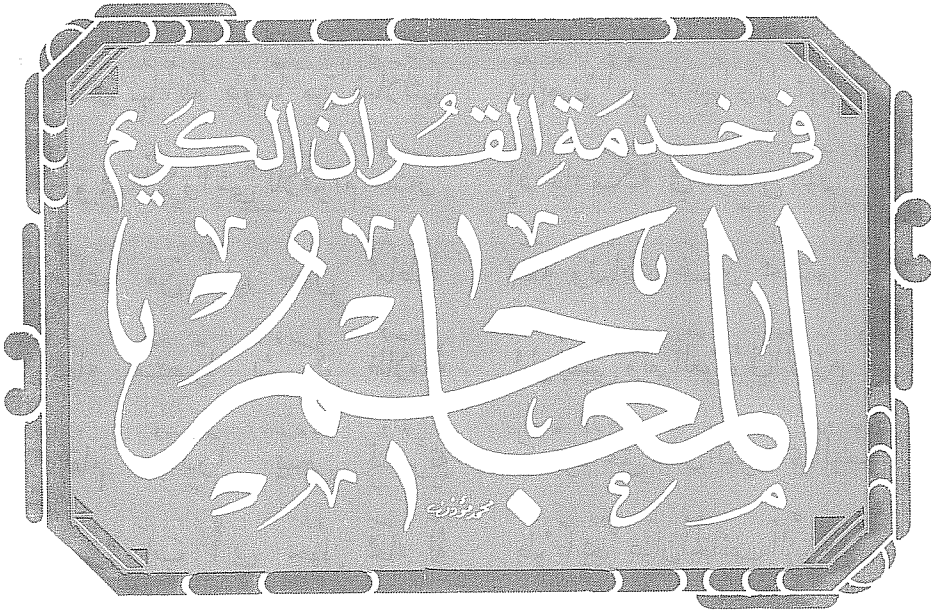 فى خدمَةِ القُرآن الكَريم
المعاجم